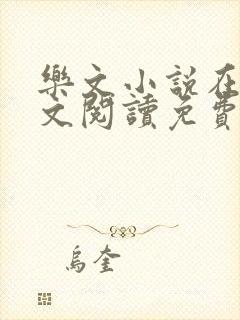 樂文小說在
文閱讀免費
烏奎